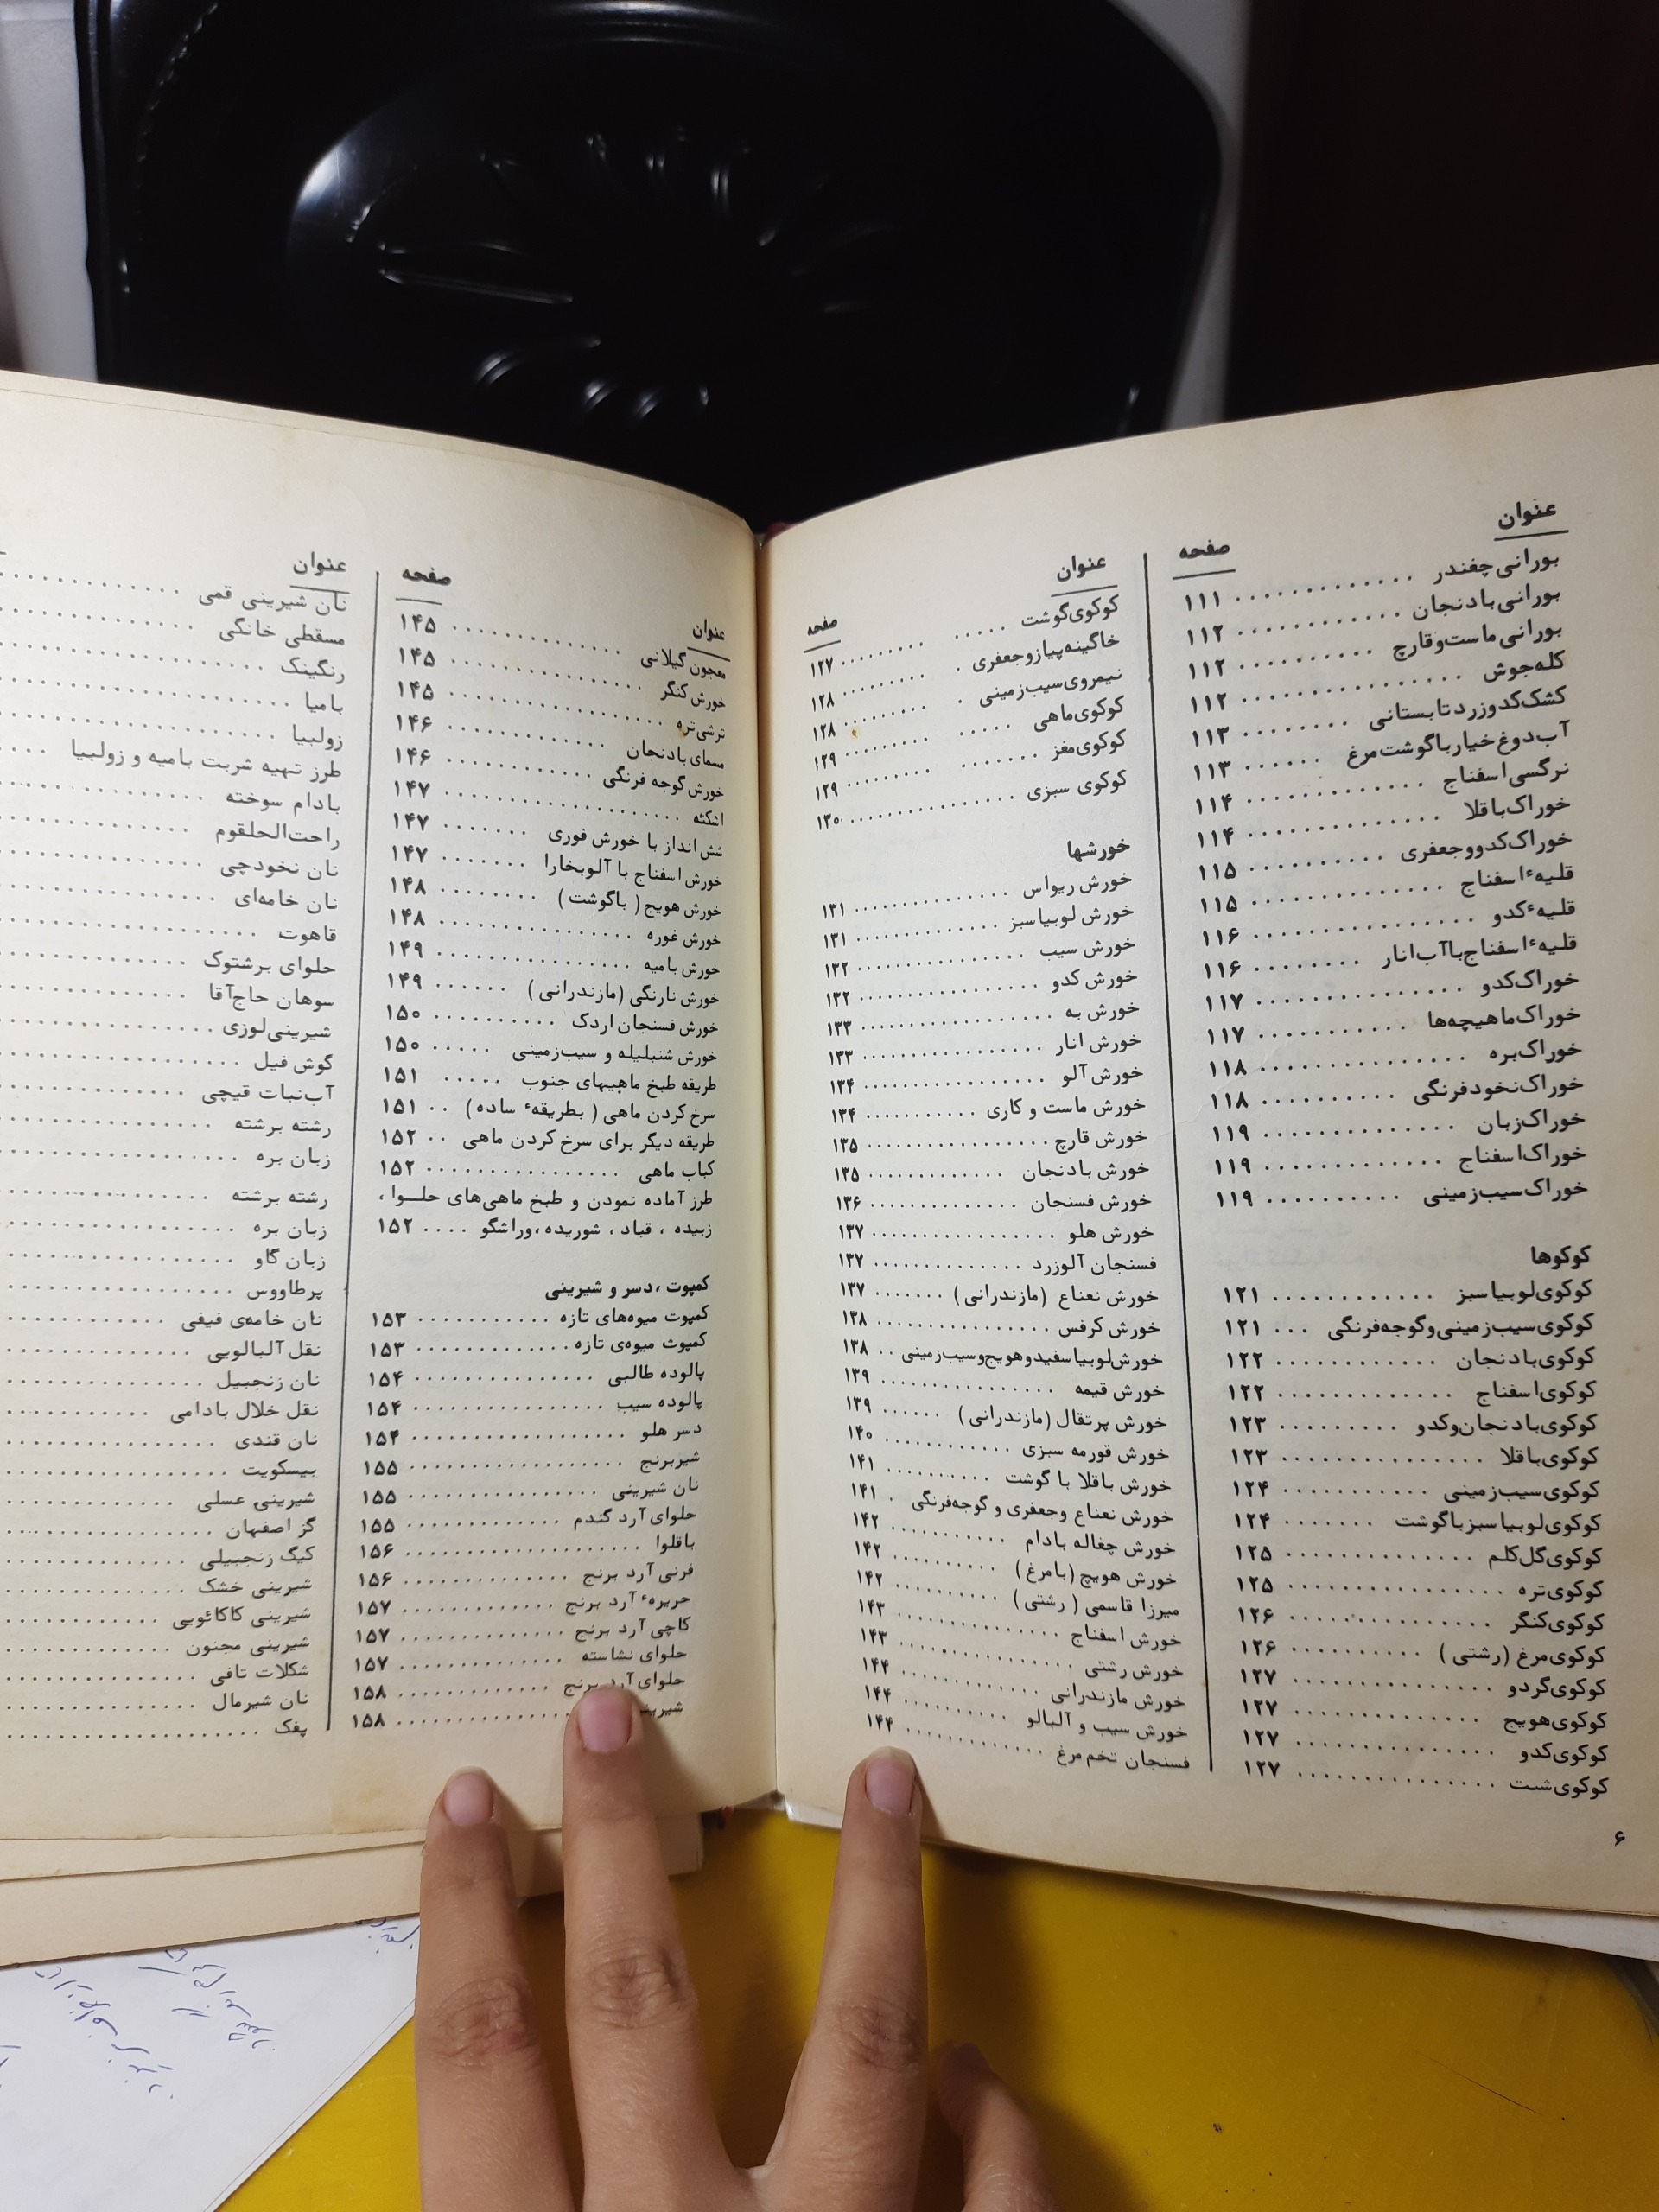 عنوان
صفحه
بورانی چغندر ............ ۱۱۱
بورانی بادنجان ............ ۱۱۲
بورانی ماست و قارچ .......... ۱۱۲
کله جوش ................ ۱۱۲
کشک کدو زرد تابستانی ........ ۱۱۳
آب دوغ خیار با گوشت مرغ ...... ۱۱۳
نرگسی اسفناج ............. ۱۱۴
خوراک باقلا .............. ۱۱۴
خوراک کدو و جعفری .......... ۱۱۵
قلیهٔ اسفناج ............. ۱۱۵
قلیهٔ کدو ................ ۱۱۶
قلیهٔ اسفناج با آب انار ........ ۱۱۶
خوراک کدو ............... ۱۱۷
خوراک ماهیچه‌ها ............ ۱۱۷
خوراک بره ............... ۱۱۸
خوراک نخود فرنگی .......... ۱۱۸
خوراک زبان .............. ۱۱۹
خوراک اسفناج ............. ۱۱۹
خوراک سیب زمینی .......... ۱۱۹
کوکوها
کوکوی لوبیا سبز ............ ۱۲۱
کوکوی سیب زمینی و گوجه فرنگی ... ۱۲۱
کوکوی بادنجان ............ ۱۲۲
کوکوی اسفناج ............. ۱۲۲
کوکوی بادنجان و کدو ......... ۱۲۳
کوکوی باقلا .............. ۱۲۳
کوکوی سیب زمینی ........... ۱۲۴
کوکوی لوبیا سبز با گوشت ....... ۱۲۴
کوکوی گل کلم ............. ۱۲۵
کوکوی تره ............... ۱۲۵
کوکوی کنگر .............. ۱۲۶
کوکوی مرغ (رشتی) .......... ۱۲۶
کوکوی گردو .............. ۱۲۷
کوکوی هویج .............. ۱۲۷
کوکوی کدو ............... ۱۲۷
کوکوی شت ............... ۱۲۷
۶
عنوان
صفحه
کوکوی گوشت ............. ۱۲۷
خاگینه پیاز و جعفری ......... ۱۲۸
نیمروی سیب زمینی .......... ۱۲۸
کوکوی ماهی .............. ۱۲۹
کوکوی مغز ............... ۱۲۹
کوکوی سبزی .............. ۱۳۰
خورشها
خورش ریواس ............. ۱۳۱
خورش لوبیا سبز ............ ۱۳۱
خورش سیب .............. ۱۳۲
خورش کدو ............... ۱۳۲
خورش به ................ ۱۳۳
خورش انار ............... ۱۳۳
خورش آلو ................ ۱۳۴
خورش ماست و کاری ......... ۱۳۴
خورش قارچ .............. ۱۳۵
خورش بادنجان ............ ۱۳۵
خورش فسنجان ............ ۱۳۶
خورش هلو ............... ۱۳۷
فسنجان آلوزرد ............. ۱۳۷
خورش نعناع (مازندرانی) ....... ۱۳۷
خورش کرفس .............. ۱۳۸
خورش لوبیا سفید و هویج و سیب زمینی .. ۱۳۸
خورش قیمه ............... ۱۳۹
خورش پرتقال (مازندرانی) ...... ۱۳۹
خورش قورمه سبزی .......... ۱۴۰
خورش باقلا با گوشت ......... ۱۴۱
خورش نعناع و جعفری و گوجه فرنگی . ۱۴۱
خورش چغاله بادام ........... ۱۴۲
خورش هویج (با مرغ) ......... ۱۴۲
میرزا قاسمی (رشتی) ......... ۱۴۲
خورش اسفناج ............. ۱۴۳
خورش رشتی .............. ۱۴۳
خورش مازندرانی ........... ۱۴۴
خورش سیب و آلبالو .......... ۱۴۴
فسنجان تخم مرغ ........... ۱۴۴
عنوان
صفحه
معجون گیلانی ............. ۱۴۵
خورش کنگر .............. ۱۴۵
ترشی تره ................ ۱۴۵
مسمای بادنجان ............ ۱۴۶
خورش گوجه فرنگی .......... ۱۴۶
اشکنه .................. ۱۴۷
شش انداز یا خورش فوری ....... ۱۴۷
خورش اسفناج با آلوبخارا ....... ۱۴۷
خورش هویج (با گوشت) ........ ۱۴۸
خورش غوره .............. ۱۴۸
خورش بامیه .............. ۱۴۹
خورش نارنگی (مازندرانی) ...... ۱۴۹
خورش فسنجان اردک .......... ۱۵۰
خورش شنبلیله و سیب‌زمینی ..... ۱۵۰
طریقه طبخ ماهیهای جنوب ..... ۱۵۱
سرخ کردن ماهی (بطریقهٔ ساده) .. ۱۵۱
طریقه دیگر برای سرخ کردن ماهی .. ۱۵۲
کباب ماهی ............... ۱۵۲
طرز آماده نمودن و طبخ ماهی‌های حلوا ،
زبیده ، قباد ، شوریده ، وراشگو .... ۱۵۲
کمپوت ، دسر و شیرینی
کمپوت میوه‌های تازه .......... ۱۵۳
کمپوت میوه‌ی تازه ........... ۱۵۳
پالوده طالبی .............. ۱۵۴
پالوده سیب .............. ۱۵۴
دسر هلو ................. ۱۵۴
شیربرنج ................. ۱۵۵
نان شیرینی ............... ۱۵۵
حلوای آرد گندم ............ ۱۵۵
باقلوا .................. ۱۵۶
فرنی آرد برنج ............. ۱۵۶
حریرهٔ آرد برنج ............ ۱۵۷
کاچی آرد برنج ............. ۱۵۷
حلوای نشاسته ............. ۱۵۷
حلوای آرد برنج ............ ۱۵۸
.............. ۱۵۸
عنوان
نان شیرینی قمی .............
مسقطی خانگی .............
رنگینک ................
بامیا .................
زولبیا .................
طرز تهیه شربت بامیه و زولبیا ....
بادام سوخته ..............
راحت‌الحلقوم .............
نان نخودچی ..............
نان خامه‌ای ..............
قاهوت .................
حلوای برشتوک .............
سوهان حاج‌آقا .............
شیرینی لوزی ..............
گوش فیل ................
آب‌نبات قیچی .............
رشته برشته ..............
زبان بره ................
رشته برشته ..............
زبان بره ................
زبان گاو ................
پرطاووس ................
نان خامه‌ی فیفی ............
نقل آلبالویی ..............
نان زنجبیل ..............
نقل خلال بادامی ............
نان قندی ................
بیسکویت ................
شیرینی عسلی .............
گز اصفهان ...............
کیک زنجبیلی .............
شیرینی خشک .............
شیرینی کاکائویی ............
شیرینی مجنون .............
شکلات تافی ..............
نان شیرمال ..............
پفک ..................